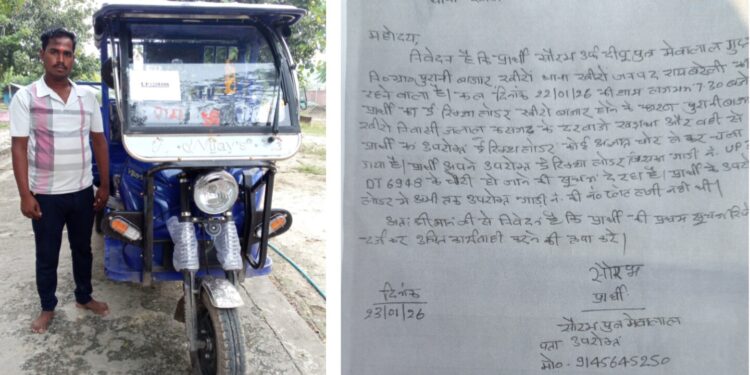 Vijay's
महोदय,
निवेदन है कि प्रार्थी सौरभ उर्फ दीपू पुत्र मेवालाल गुप्ता
नि० ग्राम पुरानी बाजार खीरो थाना खीरो जनपद रायबरेली का
रहने वाला है। कल दिनांक 22/01/26 की शाम लगभग 7.30 बजे
प्रार्थी का ई रिक्शा लोडर खीरो बाजार होने के कारण पुरानी बाजार
खीरो निवासी जलाल के दरवाजे खड़ा था और वहीं से
प्रार्थी का उपरोक्त ई रिक्शा लोडर कोई अज्ञात चोर लेकर चला
गया है। प्रार्थी अपने उपरोक्त ई रिक्शा लोडर जिसका गाड़ी नं. UP
DT 6948 के चोरी हो जाने की सूचना दे रहा है। प्रार्थी के उपरोक्त
लोडर में अभी तक उपरोक्त गाड़ी नं. की नं० प्लेट लगी नहीं थी।
अतः श्रीमान जी से निवेदन है कि प्रार्थी की प्रथम सूचना रिपोर्ट
दर्ज कर उचित कार्यवाही करने की कृपा करे।
सौरभ
दिनांक
प्रार्थी
23/01/26
सौरभ पुत्र मेवालाल
पता उपरोक्त
मो०- 9145645250